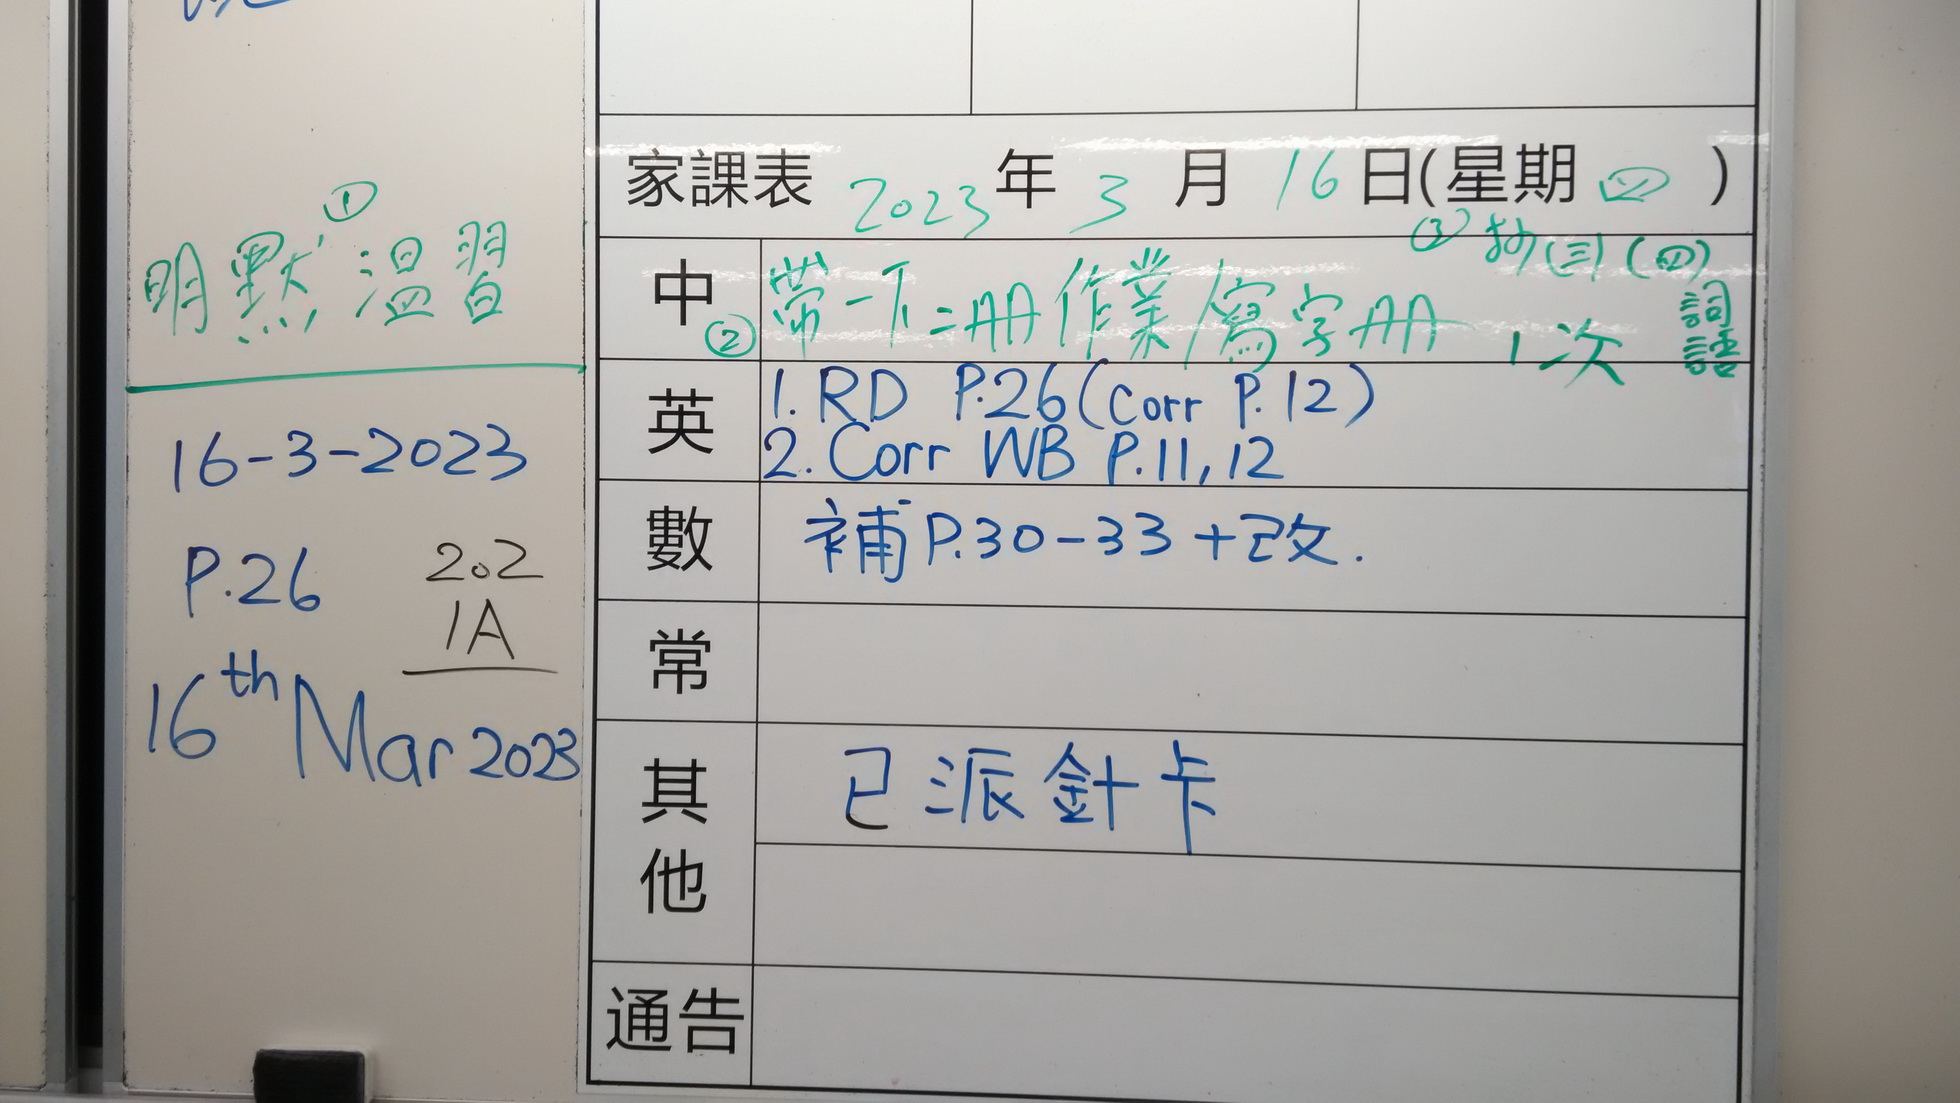 ①
明默溫習
16-3-2023
P.26
202
1A
16th Mar 2023
家課表 2023 年 3 月 16 日(星期 四 )
③ 抄(三)(四)
詞語
1次
中 ② 帶一下二冊作業/寫字冊
英 1. RD P.26 (Corr P.12)
2. Corr WB P.11, 12
數 補 P.30-33 + 改.
常
其他 已派針卡
通告